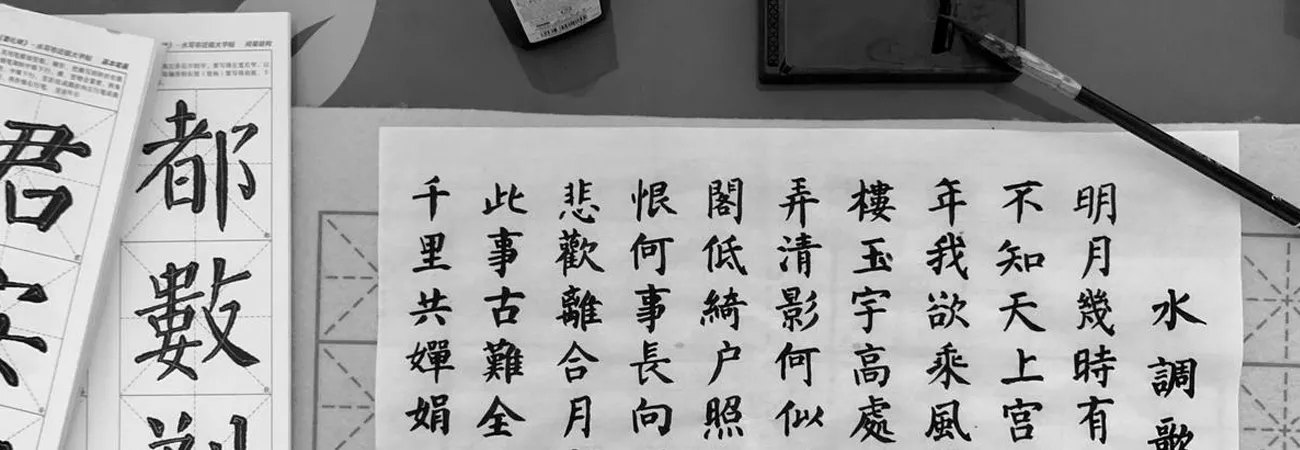 水調歌
明月幾時有
不知天上宮
年我欲乘風
樓玉宇高處
弄清影何似
閣低綺户照
恨何事長向
悲歡離合月
此事古難全
千里共嬋娟
都數
君